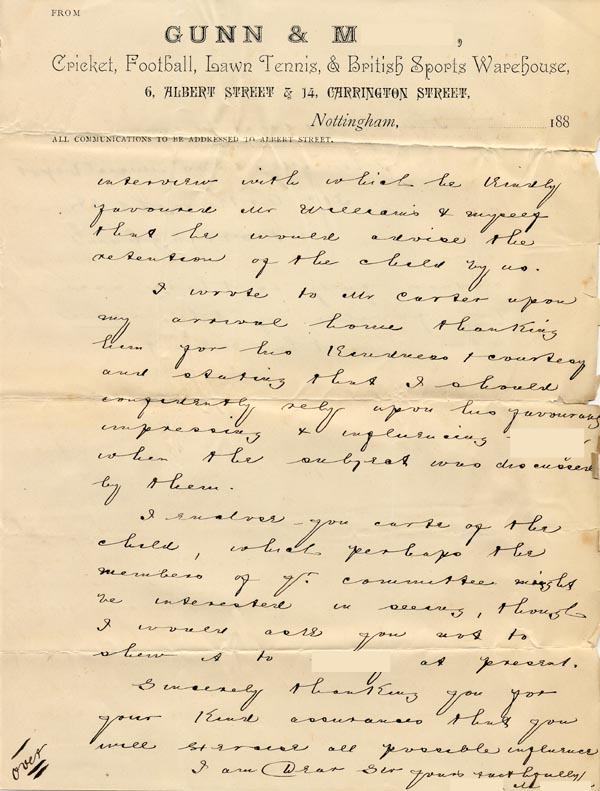 FROM
GUNN & M ,
Cricket, Football, Lawn Tennis, & British Sports Warehouse,
6, ALBERT STREET & 14, CARRINGTON STREET,
Nottingham, 188
ALL COMMUNICATIONS TO BE ADDRESSED TO ALBERT STREET.
interview with which he kindly
favoured Mr Williams & myself
that he would advise the
retention of the child by us.
I wrote to Mr Carter upon
my arrival home thanking
him for his kindness & courtesy
and stating that I should
confidently rely upon his favourably
impressing & influencing
when the subject was discussed
by them.
I enclose you carte of the
child, which perhaps the
members of yr. committee might
be interested in seeing, though
I would ask you not to
shew it to at present.
Sincerely thanking you for
your kind assurances that you
will exercise all possible influence
I am Dear Sir yours faithfully
over